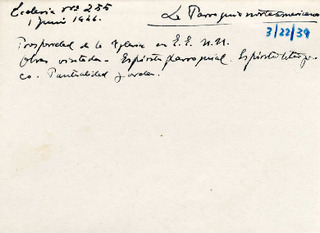 Ecclesia nº 255
1 junio 1946.
La Parroquia norteamericana
3/22/39
Prosperidad de la Iglesia en E.E. U.U.
Obras visitadas - Espíritu parroquial. Espíritu litúrgi-
co. Puntualidad y orden.